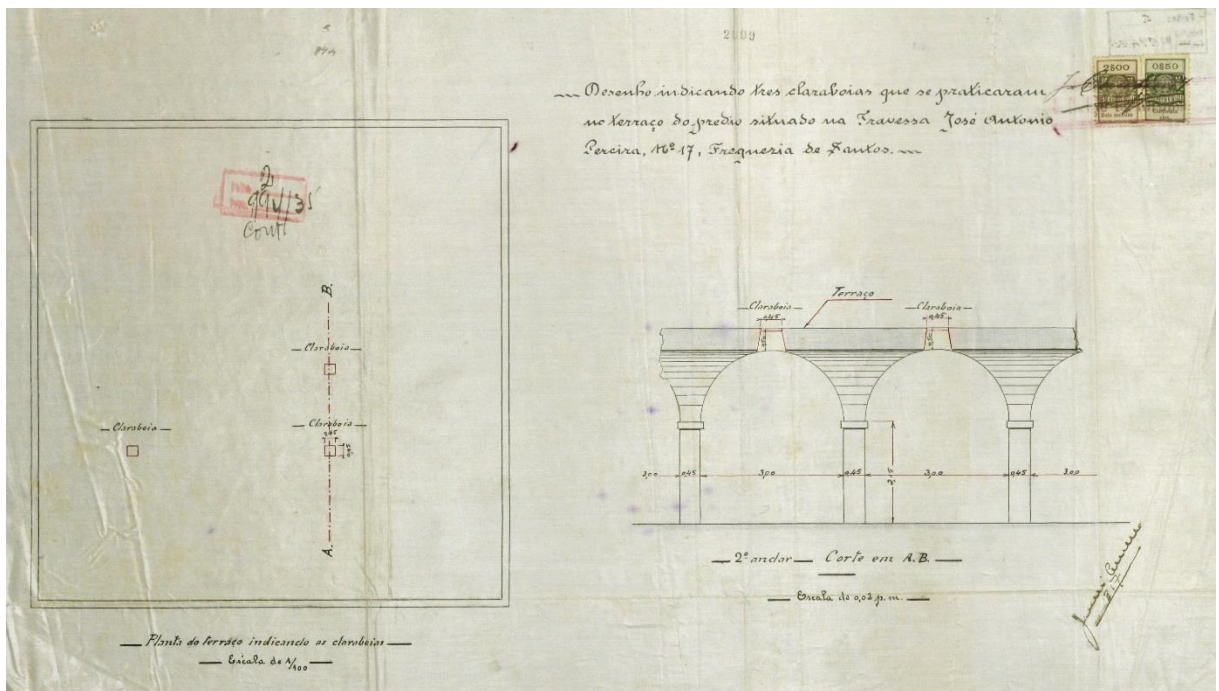 2009
Desenho indicando tres claraboias que se praticaram
no terraço do predio situado na Travessa José Antonio
Pereira, Nº 17, Freguezia de Santos.
2$00
0$50
B.
Claraboia
Claraboia
0,45
0,45
Claraboia
A.
Planta do terraço indicando as claraboias
Escala de 1/100
Terraço
Claraboia
0,45
Claraboia
0,45
0,50
0,50
2,15
3,00
0,45
3,00
0,45
3,00
0,45
3,00
2º andar Corte em A.B.
Escala de 0,02 p.m.